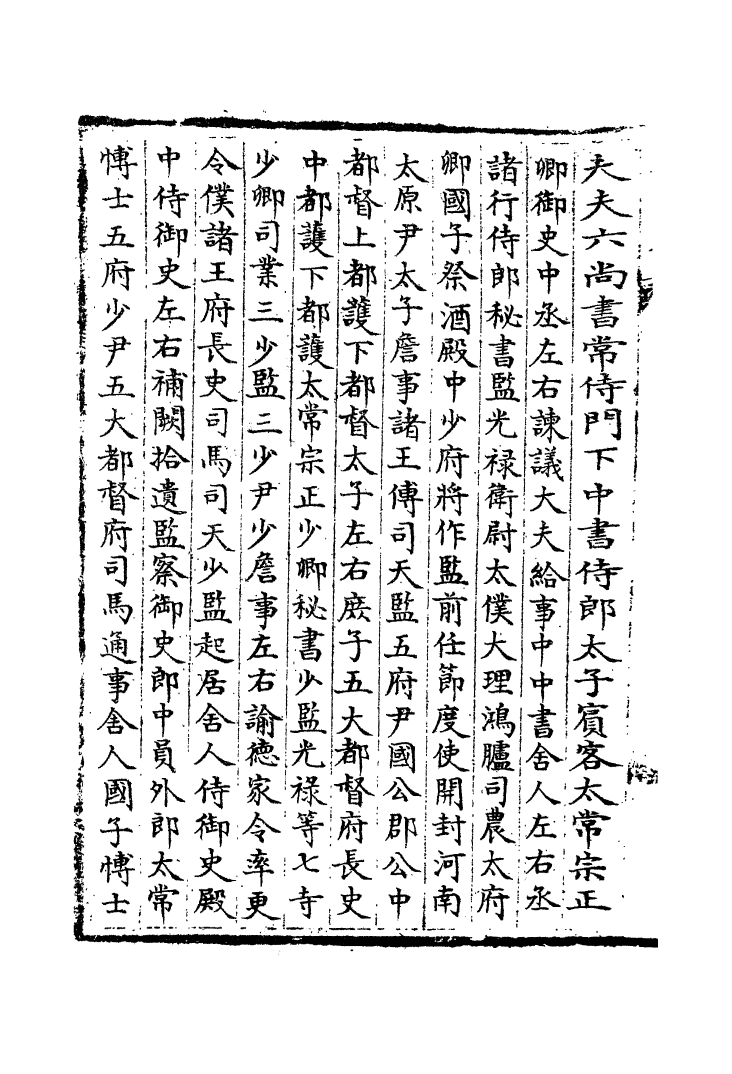 夫夫六尚書常侍門下中書侍郎太子賓客太常宗正
卿御史中丞左右諫議大夫給事中中書舍人左右丞
諸行侍郎秘書監光禄衛尉太僕大理鴻臚司農太府
卿國子祭酒殿中少府將作監前任節度使開封河南
太原尹太子詹事諸王傅司天監五府尹國公郡公中
都督上都護下都督太子左右庶子五大都督府長史
中都護下都護太常宗正少卿秘書少監光禄等七寺
少卿司業三少監三少尹少詹事左右諭德家令率更
令僕諸王府長史司馬司天少監起居舍人侍御史殿
中侍御史左右補闕拾遺監察御史郎中員外郎太常
博士五府少尹五大都督府司馬通事舍人國子博士